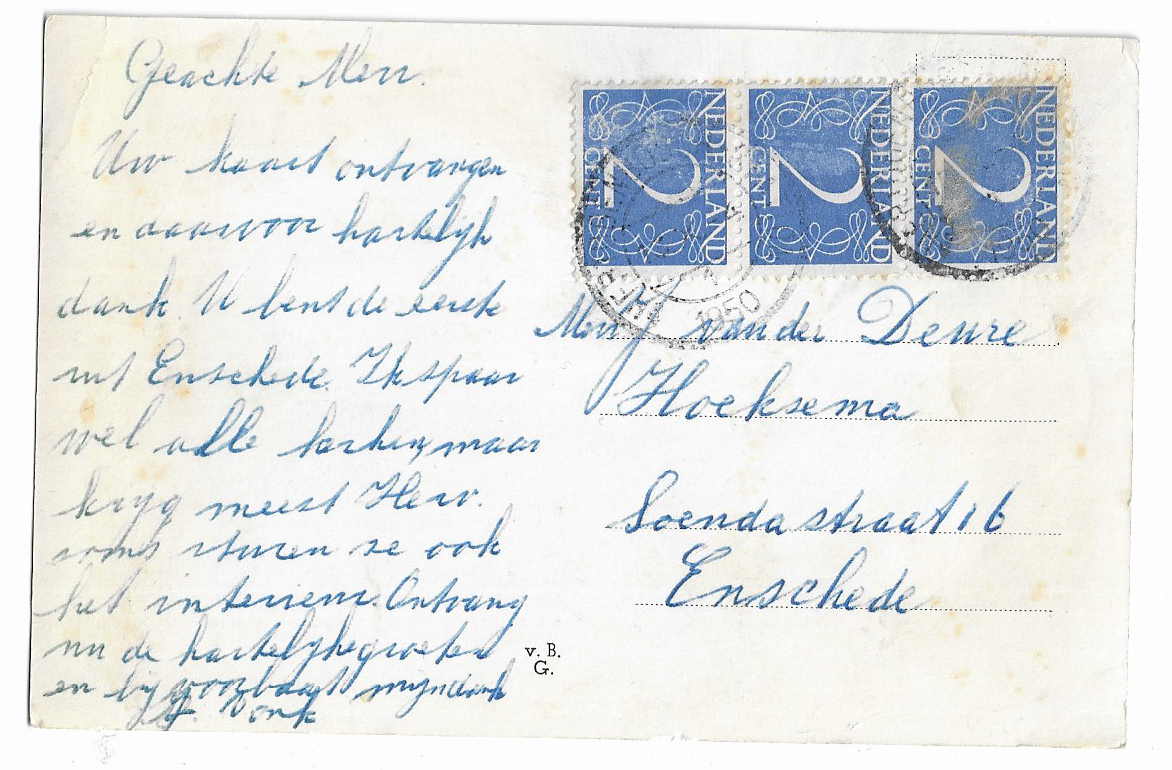 Geachte Mevr.
Uw kaart ontvangen
en daarvoor hartelijk
dank. U bent de eerste
uit Enschede. Ik spaar
wel alle kerken, maar
kryg meest Herv.
soms sturen ze ook
het interieur. Ontvang
nu de hartelykegroeten
en by voorbaat mijn dank
Vonk
NEDERLAND
2
CENT
NEDERLAND
2
CENT
NEDERLAND
2
CENT
1950
Mevr van der Deure
Hoeksema
Soendastraat 16
Enschede
v. B.
G.